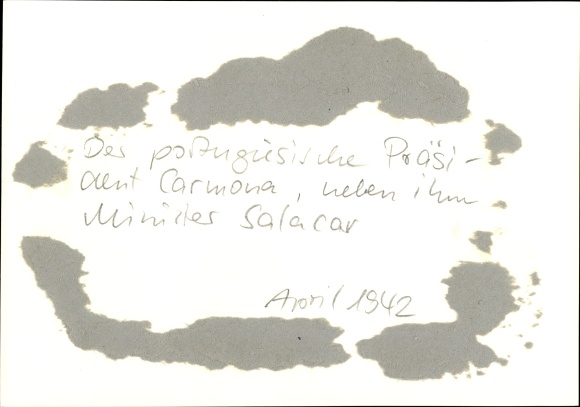 Der portugisische Präsi-
dent Carmona, neben ihm
Minister Salacar
April 1942